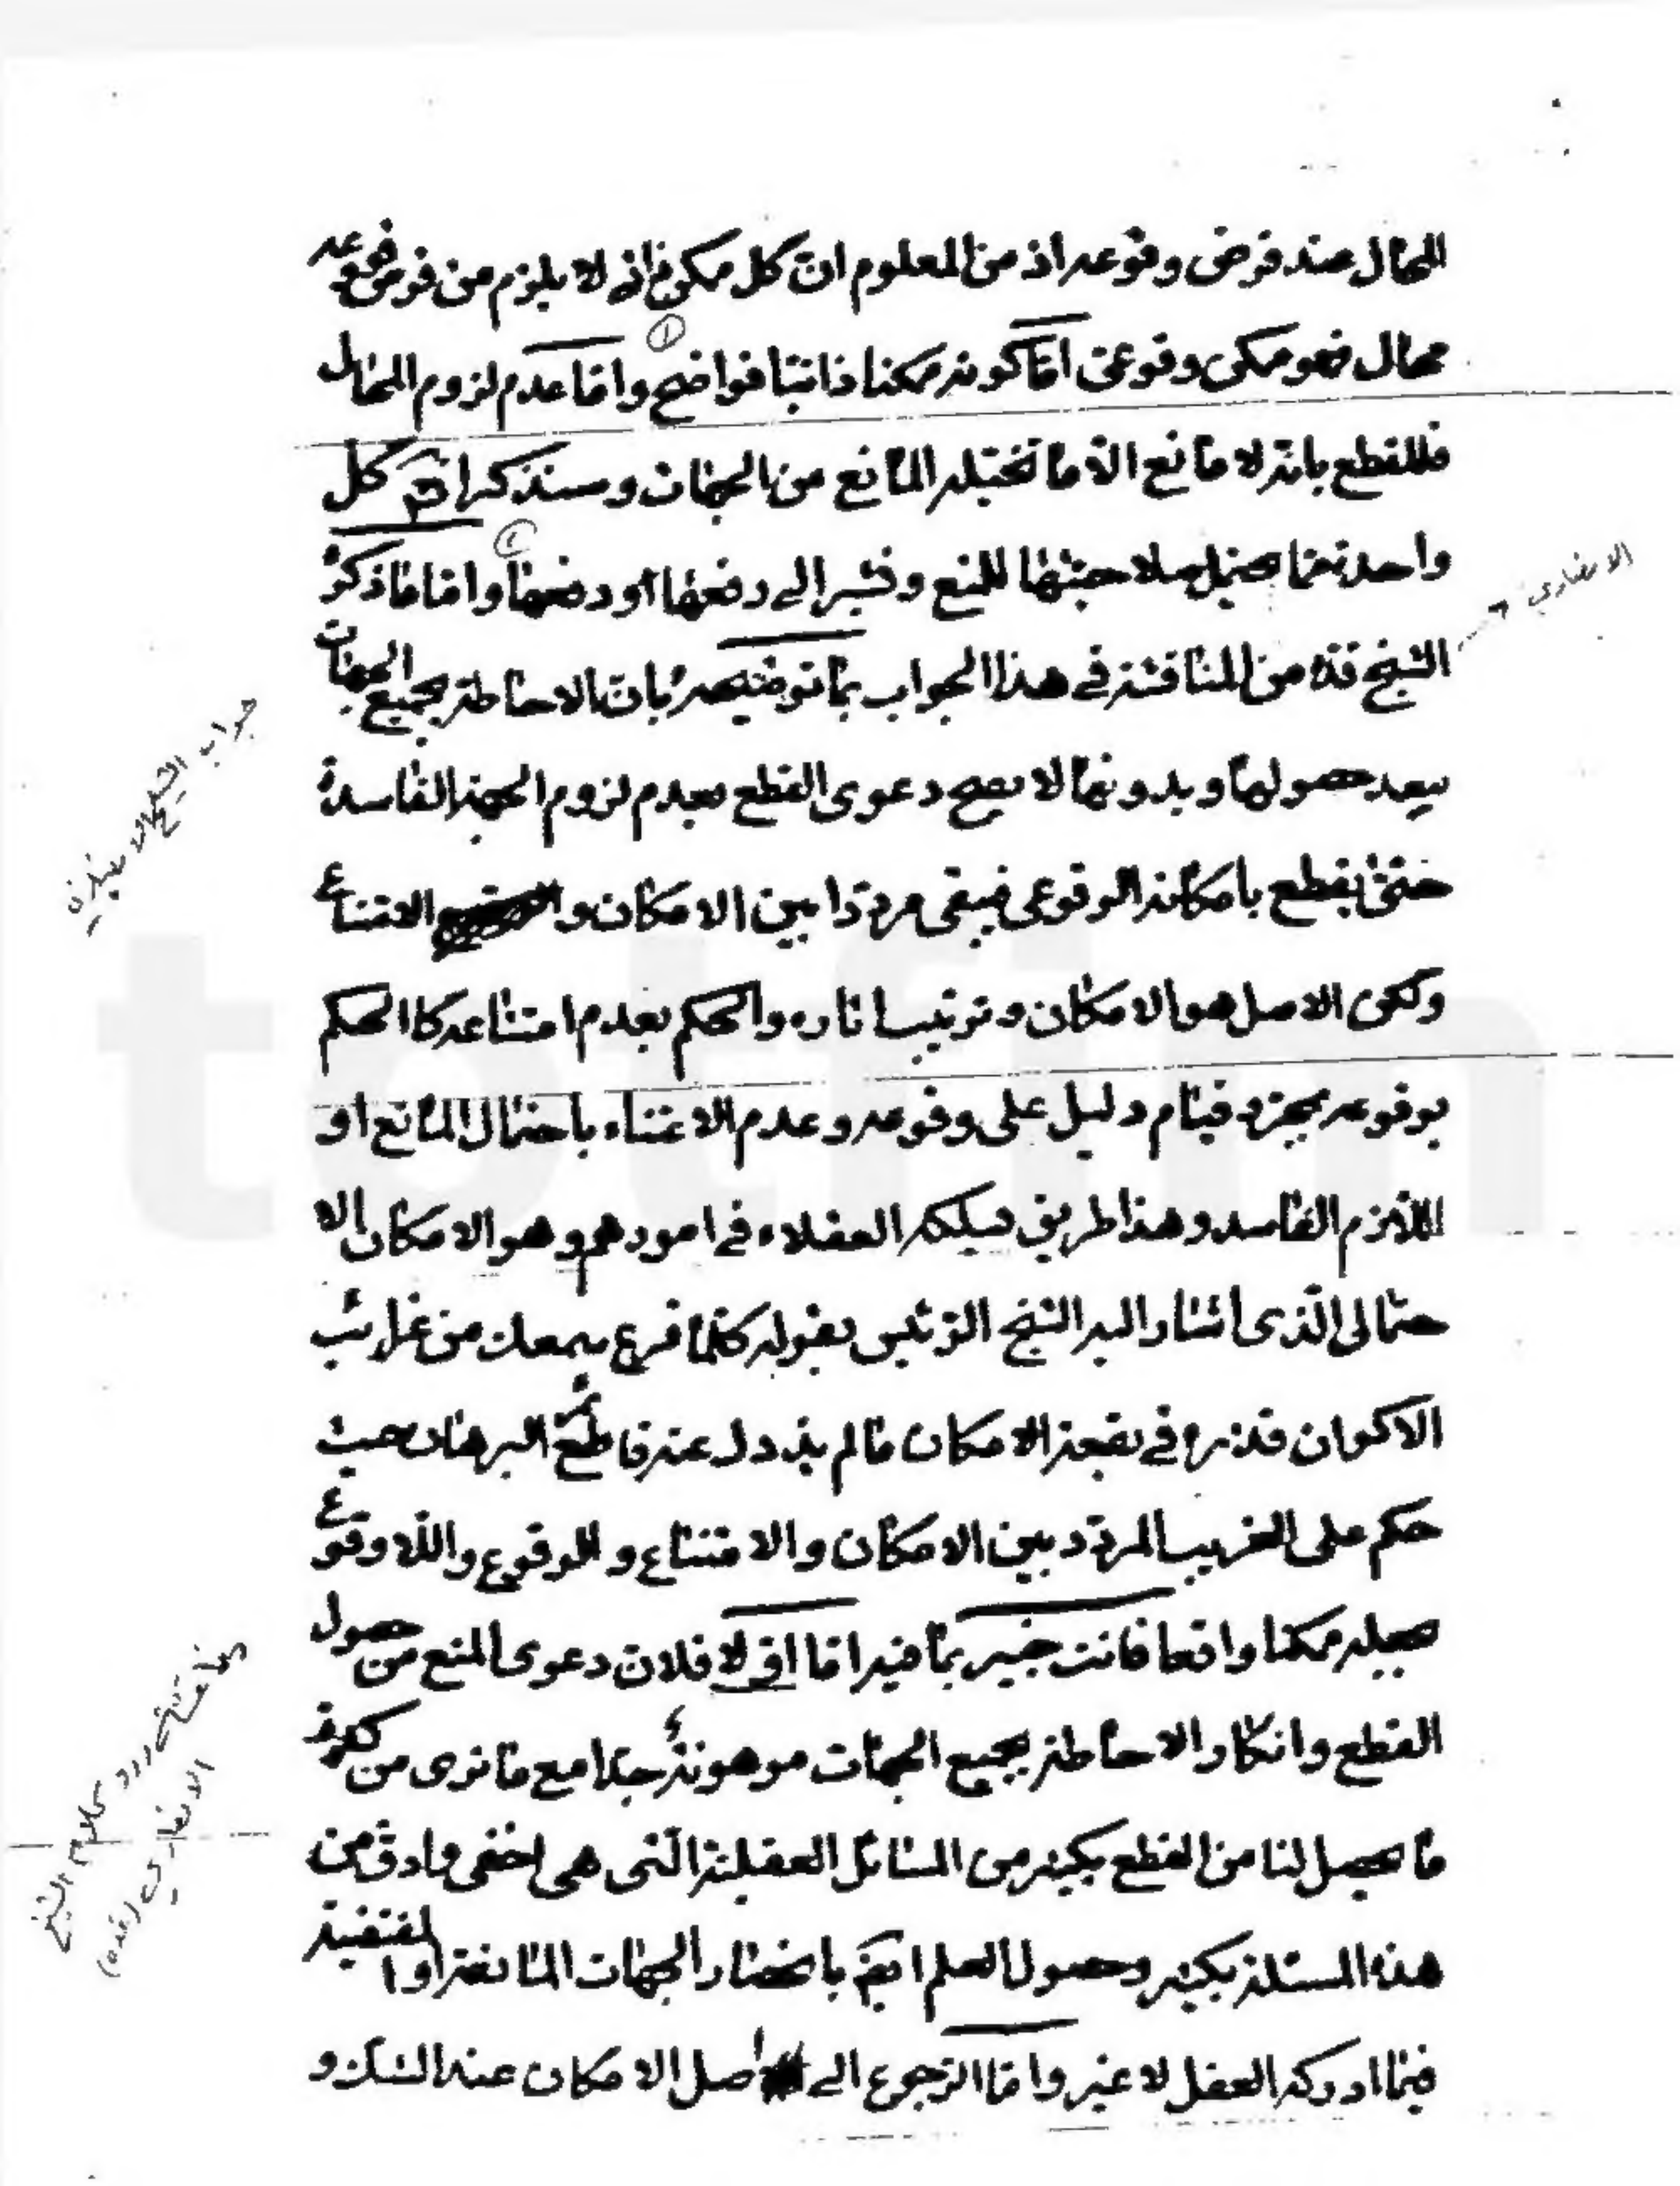 المحال عند فرض وقوعه اذ من المعلوم ان كل ممكن ذاتى لا يلزم من فرض وقوعه
محال فهو ممكن وقوعى امّا كونه ممكنا ذاتيّا فواضح وامّا عدم لزوم المحال
فللقطع بانه لا مانع الّا ما تخيّله المانع من الجهات وسنذكر انش كل
واحدة ممّا يحتمل صلاحيتها للمنع ونشير الى دفعها او دفعهما وامّا ما ذكره
الشيخ قده من المناقشة فى هذا الجواب بما توضيحه بان الاحاطة بجميع الجهات
يبعد حصولها وبدونها لا يصح دعوى القطع بعدم لزوم الجهة الفاسدة
حتى يقطع بامكانه الوقوعى فيبقى مردّدا بين الامكان والامتناع
ولكن الاصل هو الامكان وترتيب اثاره والحكم بعدم امتناعه كالحكم
بوقوعه بمجرد قيام دليل على وقوعه وعدم الاعتناء باحتمال المانع او
اللازم الفاسد وهذا طريق يسلكه العقلاء فى امورهم وهو الامكان الا
حتمالى الّذى اشار اليه الشيخ الرّئيس بقوله كلّما قرع سمعك من غرائب
الاكوان فذره فى بقعة الامكان ما لم يذدك عنه قاطع البرهان حيث
حكم على الغريب المردّد بين الامكان والامتناع والوقوع واللّا وقوع
بجعله ممكنا واقعا فانت خبير بما فيه امّا اوّلا فلان دعوى المنع من حصول
القطع وانكار الاحاطة بجميع الجهات موهونة جدا مع ما نرى من كثرة
ما يحصل لنا من القطع بكثير من المسائل العقلية الّتى هى اخفى وادق من
هذه المسئلة بكثير وحصول العلم ايضا بانحصار الجهات المانعة او المقتضية
فيما ادركه العقل لا غير وامّا الرّجوع الى اصل الامكان عند الشك و
الانصاري
جواب الشيخ الانصاري
رد كلام الشيخ
الانصاري (قده)